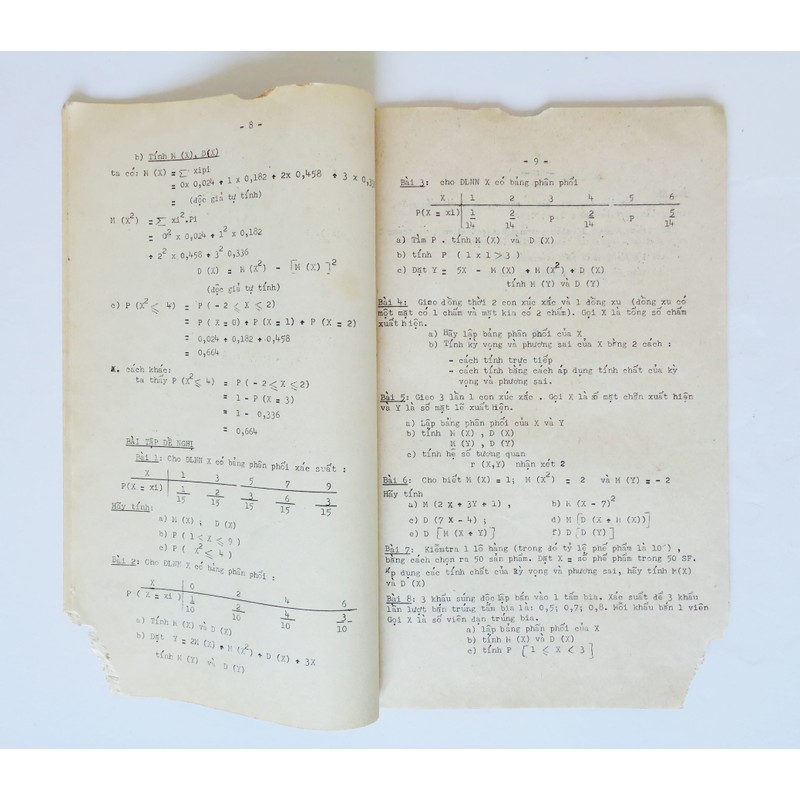 - 8 -
b) Tính M (X), D(X)
ta có: M (X) = ∑ xipi
= 0x 0,024 + 1 x 0,182 + 2x 0,458 + 3 x 0,336
= (độc giả tự tính)
M (X²) = ∑ xi².Pi
= 0² x 0,024 + 1² x 0,182
+ 2² x 0,458 + 3² 0,336
D (X) = M (X²) - [M (X)]²
(độc giả tự tính)
c) P (X² ⩽ 4) = P ( - 2 ⩽ X ⩽ 2)
= P ( X = 0) + P (X = 1) + P (X = 2)
= 0,024 + 0,182 + 0,458
= 0,664
X. cách khác:
ta thấy P (X² ⩽ 4) = P ( - 2 ⩽ X ⩽ 2)
= 1 - P (X = 3)
= 1 - 0,336
= 0,664
BÀI TẬP ĐỀ NGHỊ
Bài 1: Cho ĐLNN X có bảng phân phối xác suất :
X 1 3 5 7 9
P(X = xi) 1/15 2/15 3/15 6/15 3/15
Hãy tính:
a) M (X) ; D (X)
b) P ( 1 < X ⩽ 5 )
c) P ( X² ⩽ 4 )
Bài 2: Cho ĐLNN X có bảng phân phối :
X 0 2 4 6
P ( X = xi ) 1/10 2/10 4/10 3/10
a) Tính M (X) và D (X)
b) Đặt Y = 2M (X) + M (X²) + D (X) + 3X
tính M (Y) và D (Y)
- 9 -
Bài 3: cho ĐLNN X có bảng phân phối
X 1 2 3 4 5 6
P(X = xi) 1/14 2/14 P 2/14 P 5/14
a) Tìm P . tính M (X) và D (X)
b) tính P ( 1 x 1 > 3 )
c) Đặt Y = 5X - M (X) + M (X²) + D (X)
tính M (Y) và D (Y)
Bài 4: Gieo đồng thời 2 con xúc xắc và 1 đồng xu (đồng xu có
một mặt có 1 chấm và mặt kia có 2 chấm). Gọi X là tổng số chấm
xuất hiện.
a) Hãy lập bảng phân phối của X
b) Tính kỳ vọng và phương sai của X bằng 2 cách :
- cách tính trực tiếp
- cách tính bằng cách áp dụng tính chất của kỳ
vọng và phương sai.
Bài 5: Gieo 3 lần 1 con xúc xắc . Gọi X là số mặt chẵn xuất hiện
và Y là số mặt lẻ xuất hiện.
a) Lập bảng phân phối của X và Y
b) tính M (X) , D (X)
M (Y) , D (Y)
c) tính hệ số tương quan
r (X,Y) nhận xét 2
Bài 6: Cho biết M (X) = 1; M (X²) = 2 và M (Y) = - 2
Hãy tính
a) M (2 X + 3Y + 1) , b) M (X - 7)²
c) D (7 X - 4) ; d) M [D (X + M (X))]
e) D [M (X + Y)] f) D [D (Y)]
Bài 7: Kiểm tra 1 lô hàng (trong đó tỷ lệ phế phẩm là 10%) ,
bằng cách chọn ra 50 sản phẩm. Đặt X = số phế phẩm trong 50 SF.
Áp dụng các tính chất của kỳ vọng và phương sai, hãy tính M(X)
và D (X)
Bài 8: 3 khẩu súng độc lập bắn vào 1 tấm bia. Xác suất để 3 khẩu
lần lượt bắn trúng tấm bia là: 0,5; 0,7; 0,8. Mỗi khẩu bắn 1 viên
Gọi X là số viên đạn trúng bia.
a) lập bảng phân phối của X
b) tính M (X) và D (X)
c) tính P [1 ⩽ X < 3]